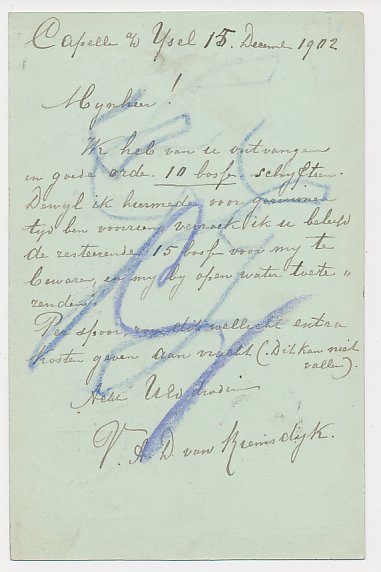 Capelle a/d Ysel 15. Decemb 1902
Mynheer!
Ik heb van u ontvangen
in goede orde. 10 bosse schyften.
Dewyl ik hiermede voor geruimen
tyd ben voorzien verzoek ik u beleefd
de resteerende 15 bosse voor my te
bewaren, en my by open water toete"
zenden.
Per spoor zou dit wellicht extra
kosten geven aan vracht (. Dit kan niet
vallen).
Acht
V. A. D. van Kremsdyk.